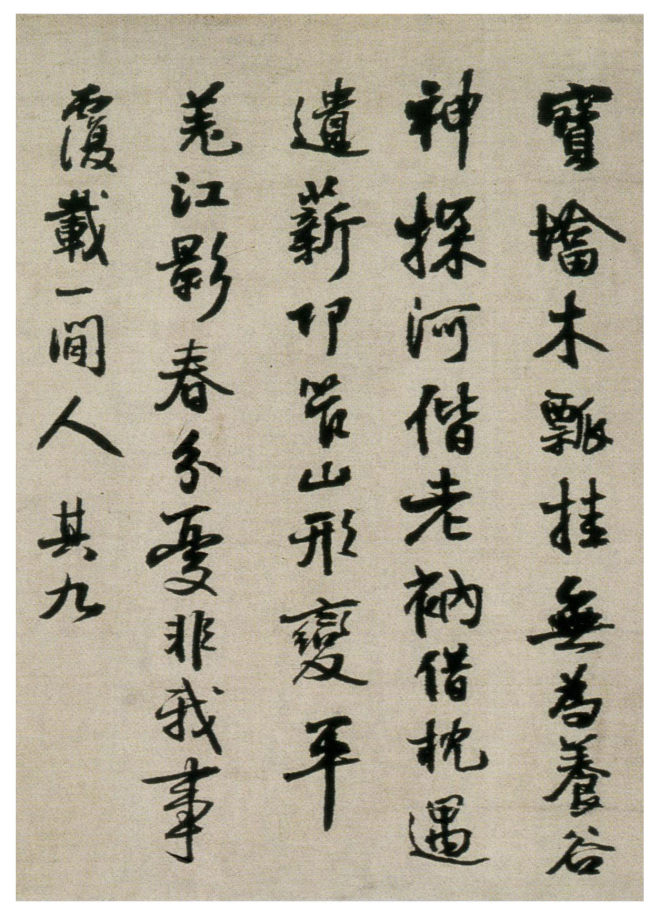 寶墖木瓢挂無為養谷
神探河偕老衲借枕遇
遺薪卭笮山形變平
羌江影春分憂非我事
覆載一閒人 其九